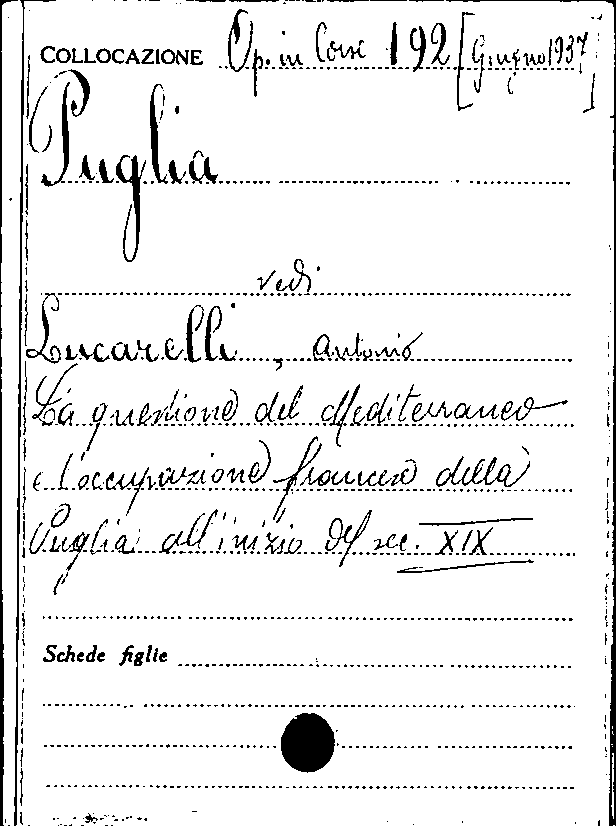 COLLOCAZIONE Op. in Corse 192 [Giugno 1937]
Puglia
vedi
Lucarelli, Antonio
La questione del Mediterraneo
e l'occupazione francese della
Puglia all'inizio del sec. XIX
Schede figlie